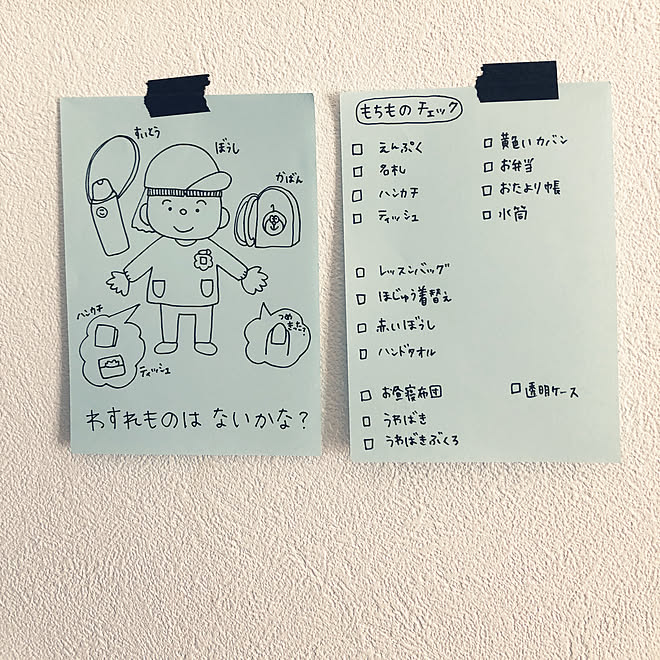 すいとう
ぼうし
かばん
ハンカチ
ティッシュ
つめ
きった?
わすれものは ないかな?
もちもの チェック
えんぷく
名札
ハンカチ
ティッシュ
黄色いカバン
お弁当
おたより帳
水筒
レッスンバッグ
ほじゅう着替え
赤いぼうし
ハンドタオル
お昼寝布団
うわばき
うわばきぶくろ
透明ケース